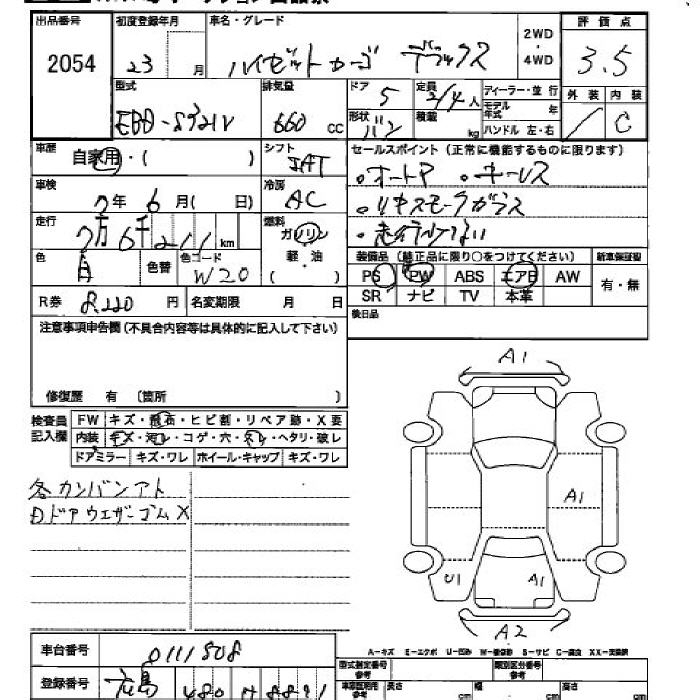 出品番号 初度登録年月 車名・グレード 2WD・4WD 評価点
2054 23 月 ハイゼットカーゴ デラックス 3.5
型式 排気量 ドア 5 定員 2/4 人 ディーラー・並行 外装 内装
EBD-S321V 660 cc 形状 バン 積載 kg モデル年式 年 C
ハンドル 左・右
車歴 自家用・( ) シフト AT セールスポイント (正常に機能するものに限ります)
車検 7年 6月( 日) 冷房 AC 。オートP 。キーレス
走行 7万6千211km 燃料 ガソリン 軽・油 ( ) 。リヤスモークガラス
色 白 色替 色コード W20 装備品 (純正品に限り○をつけてください) 新車保証書
PS PW ABS エアB AW 有・無
R券 8220 円 名変期限 月 日 SR ナビ TV 本革
注意事項申告欄 (不具合内容等は具体的に記入して下さい) 後日品
修復歴 有 (箇所 )
A1
検査員記入欄 FW キズ・飛石・ヒビ割・リペア跡・X要
内装 キズ・汚レ・コゲ・穴・スレ・ヘタリ・破レ
ドアミラー キズ・ワレ ホイール・キャップ キズ・ワレ
各カンバンアト
A1
DドアウエザーゴムX
U1 A1
A2
A-キズ E-エクボ U-凹み W-補修跡 S-サビ C-腐食 XX-交換済
車台番号 0111808
型式指定番号 参考 類別区分番号 参考
登録番号 広島 480 8891
車庫証明用 参考 長さ cm 幅 cm 高さ cm